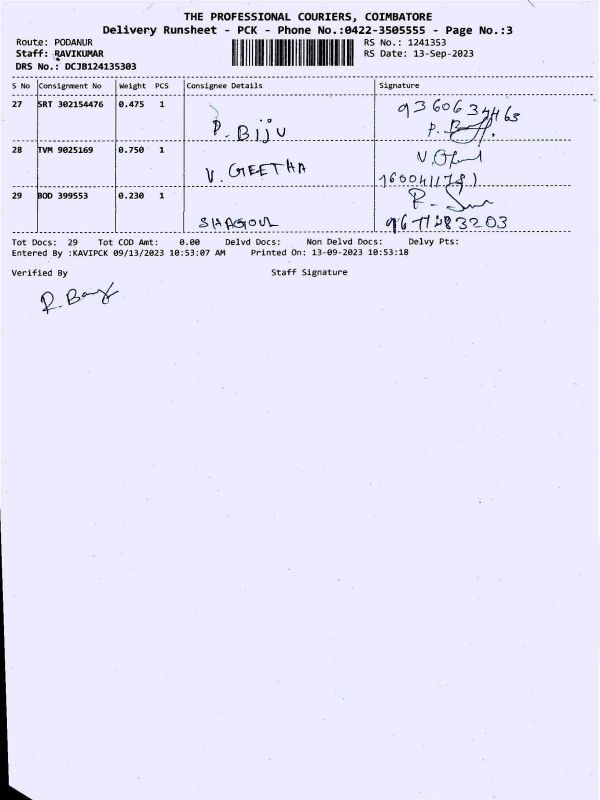 THE PROFESSIONAL COURIERS, COIMBATORE
Delivery Runsheet - PCK - Phone No.:0422-3505555 - Page No.:3
Route: PODANUR RS No.: 1241353
Staff: RAVIKUMAR RS Date: 13-Sep-2023
DRS No.: DCJB124135303
S No Consignment No Weight PCS Consignee Details Signature
27 SRT 302154476 0.475 1 P. Biju 9360634463
28 TVM 9025169 0.750 1 V. GEETHA
29 BOD 399553 0.230 1 SHAGOUL
Tot Docs: 29 Tot COD Amt: 0.00 Delvd Docs: Non Delvd Docs: Delvy Pts:
Entered By :KAVIPCK 09/13/2023 10:53:07 AM Printed On: 13-09-2023 10:53:18
Verified By Staff Signature